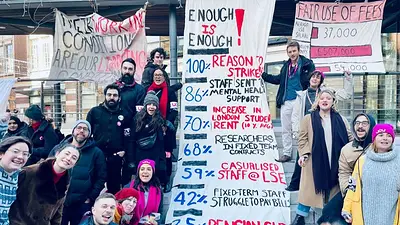 THEIR WORKING
CONDITIONS
ARE OUR LEARNING
ENOUGH
IS
ENOUGH!
100% REASON TO
STRIKE
86% STAFF SENT
MENTAL HEALTH
SUPPORT
70% INCREASE IN
LONDON STUDENT
RENT
68% RESEARCHERS
IN FIXED TERM
CONTRACTS
59% CASUALISED
STAFF @ LSE
42% FIXED-TERM STAFF
STRUGGLE TO PAY BILLS
FAIR USE OF FEES
37,000
507,000
54,000